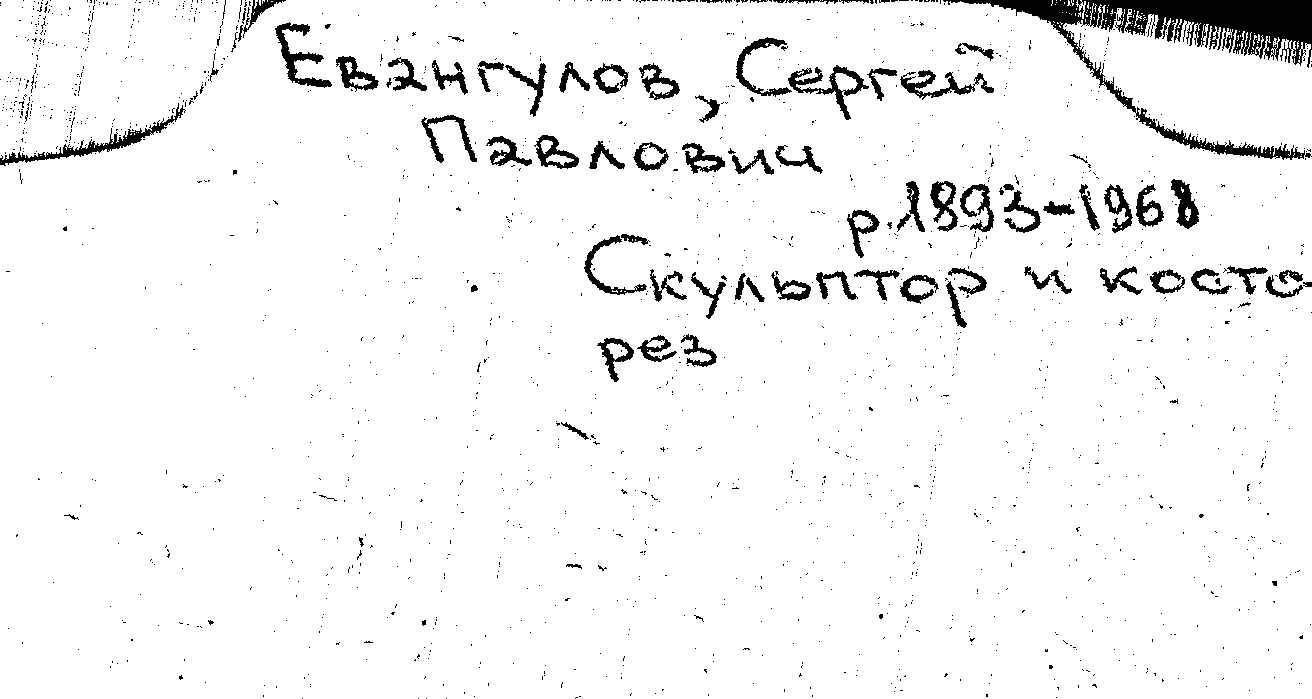 Евангулов, Сергей
Павлович
р. 1893-1968
Скульптор и косто-
рез